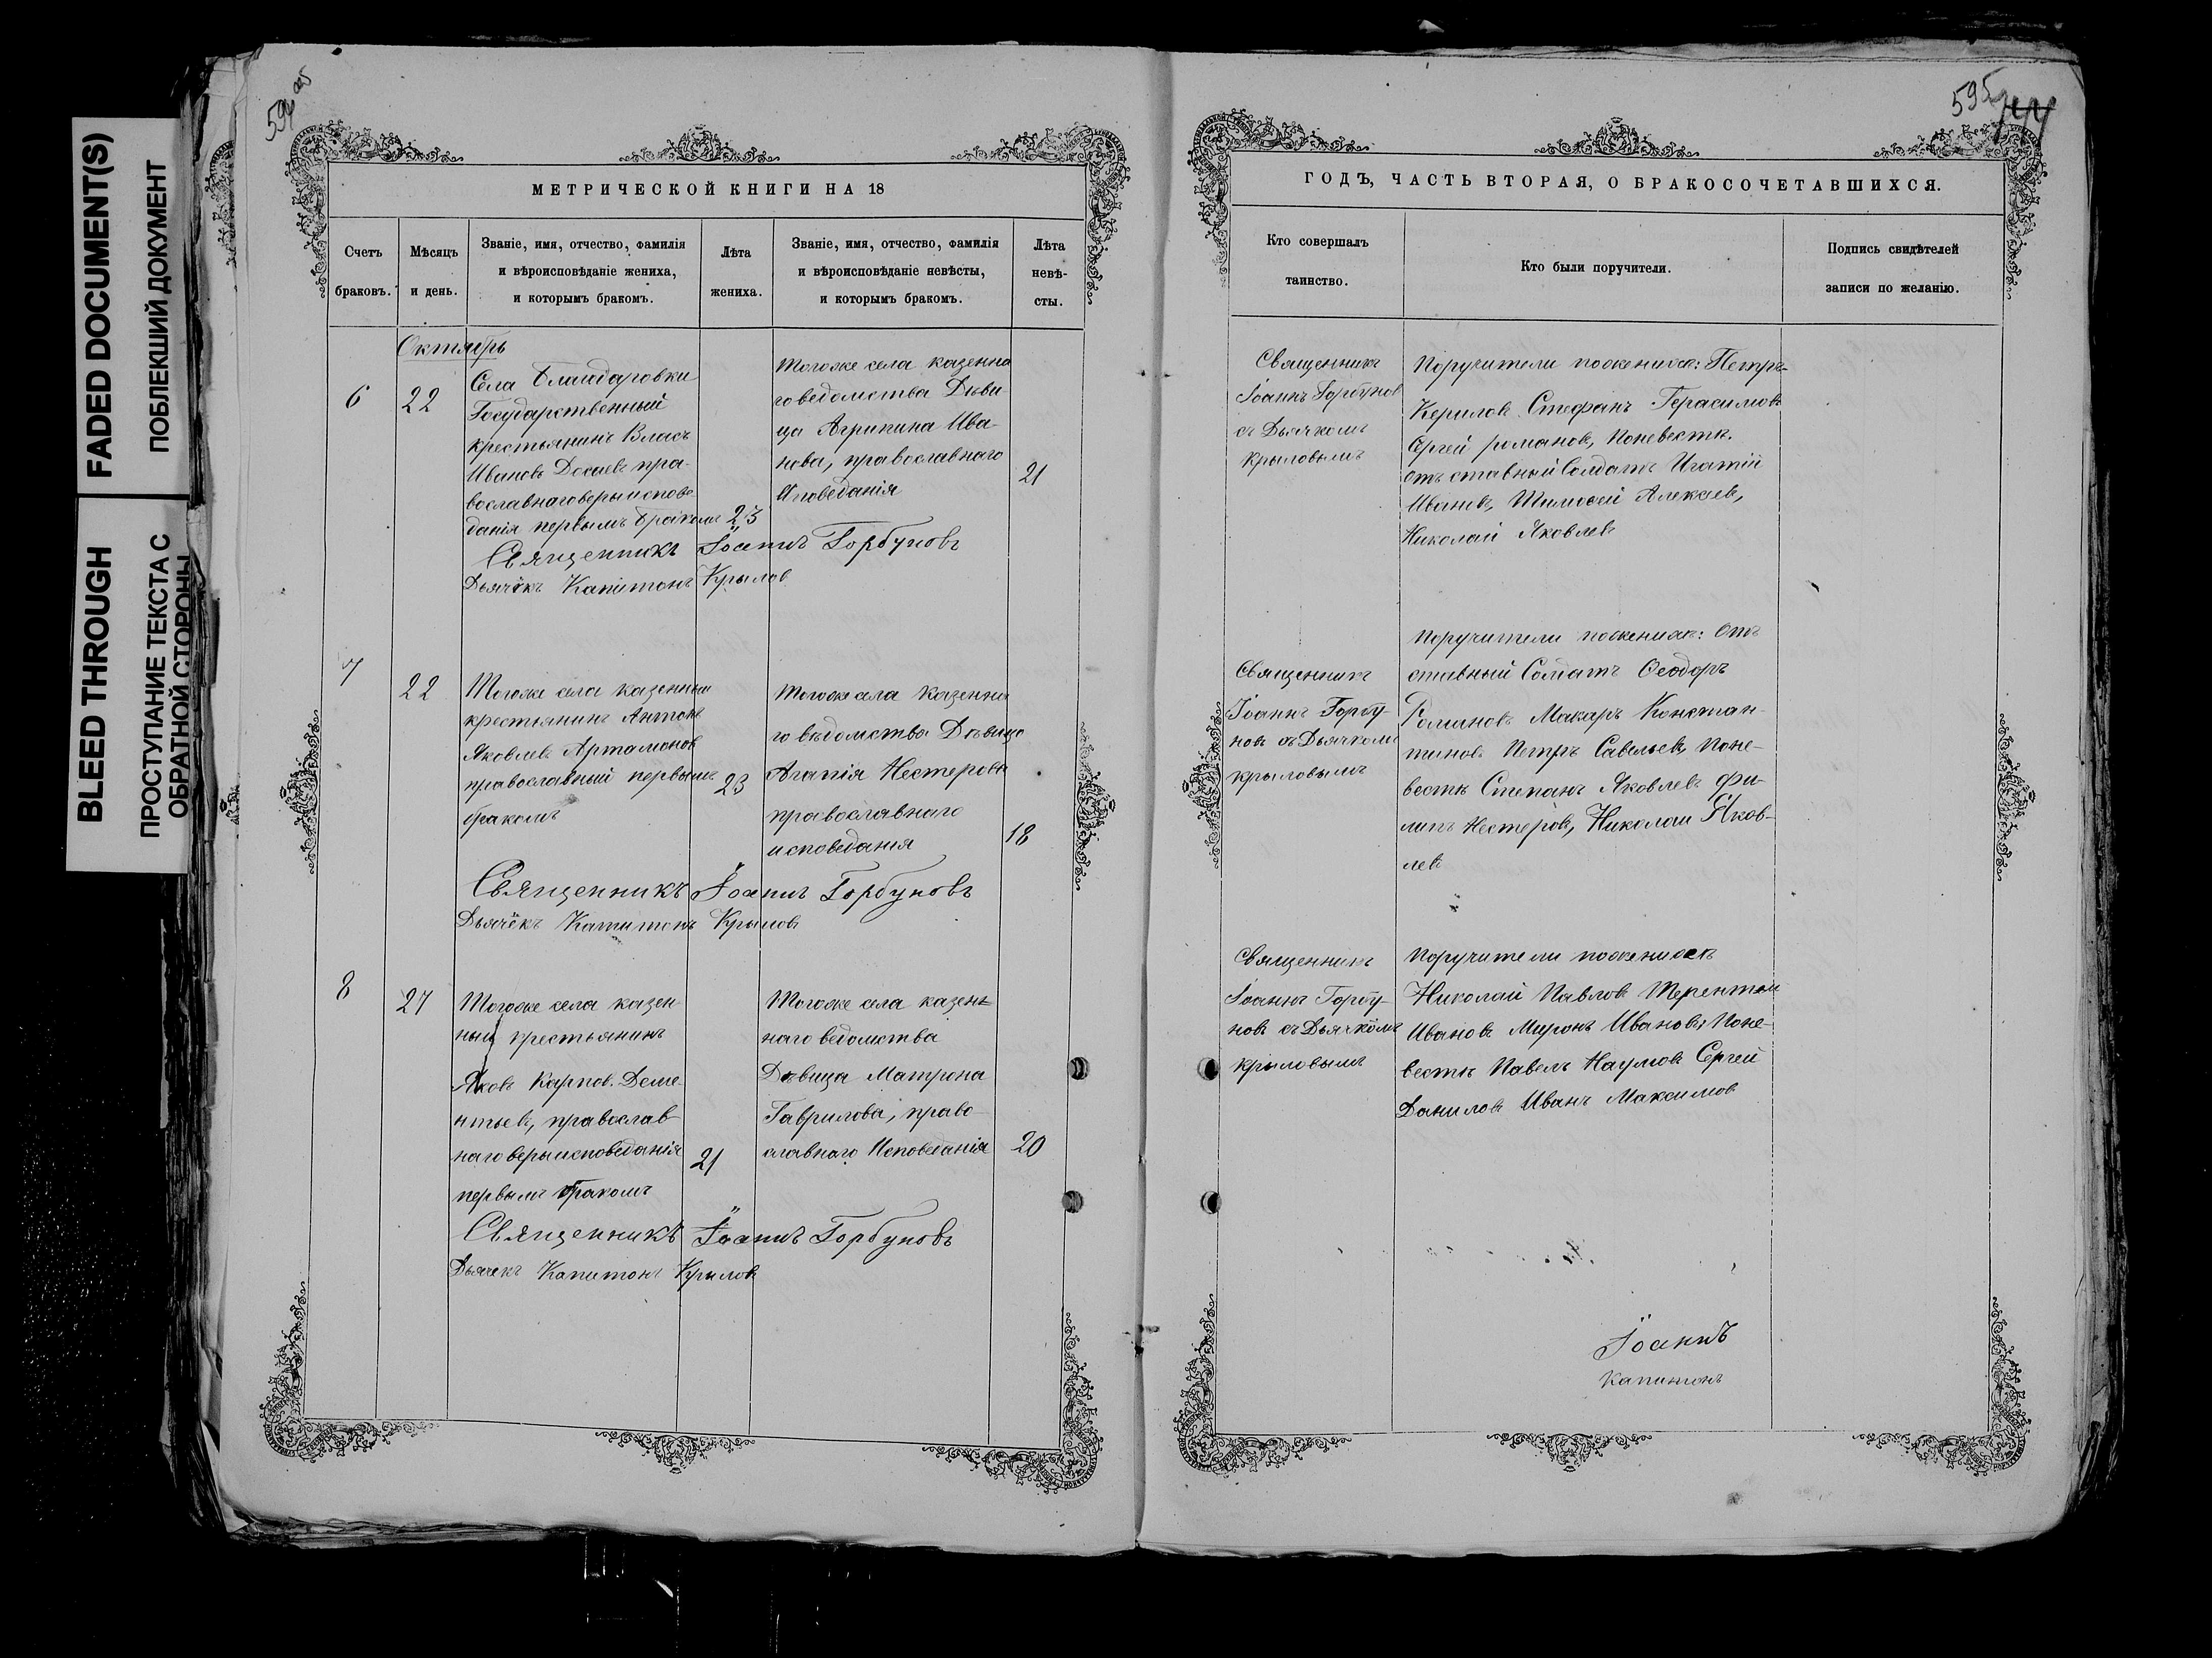 FADED DOCUMENT(S)
ПОБЛЕКШИЙ ДОКУМЕНТ
BLEED THROUGH
ПРОСТУПАНИЕ ТЕКСТА С
ОБРАТНОЙ СТОРОНЫ
МЕТРИЧЕСКОЙ КНИГИ НА 18
Счетъ
браковъ.
Мѣсяцъ
и день.
Званіе, имя, отчество, фамилія
и вѣроисповѣданіе жениха,
и которымъ бракомъ.
Лѣта
жениха.
Званіе, имя, отчество, фамилія
и вѣроисповѣданіе невѣсты,
и которымъ бракомъ.
Лѣта
невѣ-
сты.
Октябрь
6
22
Села
Государственный
крестьянинъ Власъ
Ивановъ пра-
вославнаго вероиспове
данія первымъ бракомъ
23
Тогоже села казенна
го ведомства Дѣви
ца Агрипина Ива-
нова, православнаго
Исповеданія
21
Священникъ Іоаннъ Горбуновъ
Дьячёкъ Капитонъ Крылов
7
22
Тогоже села казенный
крестьянинъ Антонъ
Яковлевъ Артамонов
православный первымъ
бракомъ
23
Тогоже села Казенна
го вѣдомства Дѣвица
Агапія Нестерова
православнаго
исповеданія
18
Священникъ Іоаннъ Горбуновъ
Дьячёкъ Капитонъ Крылов
8
27
Тогоже села казен-
ный крестьянинъ
Яковъ Карпов. Деме-
нтьевъ, православ-
наго верыисповеданія
первымъ бракомъ
21
Тогоже села казен-
наго ведомства
Дѣвица Матрона
Гаврилова, право-
славнаго Исповеданія
20
Священникъ Іоаннъ Горбуновъ
Дьячекъ Капитонъ Крылов
595
ГОДЪ, ЧАСТЬ ВТОРАЯ, О БРАКОСОЧЕТАВШИХСЯ.
Кто совершалъ
таинство.
Кто были поручители.
Подпись свидѣтелей
записи по желанію.
Священникъ
Іоаннъ Горбунов
съ Дьячкомъ
Крыловымъ
Поручители пожениха: Петръ
Керилов Стефанъ Герасимов
Сергей романов, Поневесте.
отставный Солдатъ Игатій
Иванов, Тимофей Алексеев,
Николай Яковлев
Священникъ
Іоаннъ Горбу-
новъ съ Дьячкомъ
крыловымъ
Поручители поженихе: От-
ставный Солдатъ Ѳеодоръ
Романовъ Макаръ Констан-
тинов Петръ Савельевъ Поне-
весте Степанъ Яковлевъ Фи-
липъ Нестеровъ, Николай Яков-
лев
Священникъ
Іоаннъ Горбу-
новъ съ Дьячкомъ
крыловымъ
Поручители поженихе
Николай Павлов Терентей
Иванов Миронъ Ивановъ Поне-
весте Павелъ Наумов Сергей
Данилов Иванъ Максимов
Іоаннъ
Капитонъ